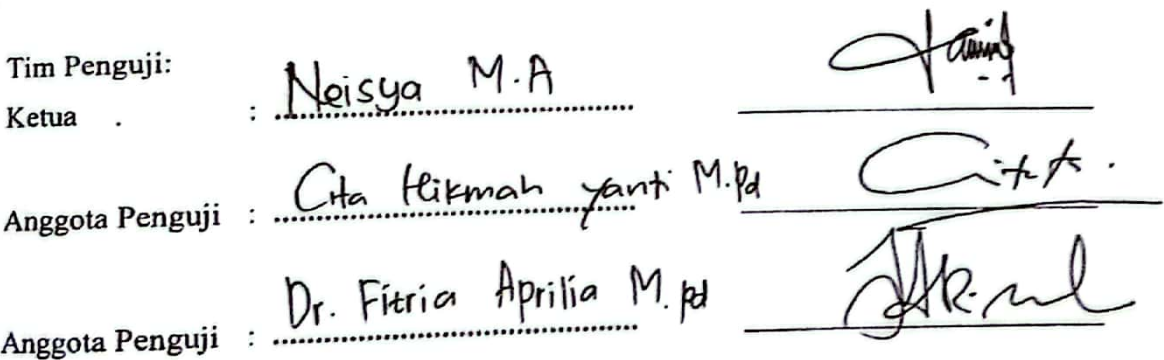 Tim Penguji:
Ketua : Neisya M.A
Anggota Penguji : Cita Hikmah yanti M.Pd
Anggota Penguji : Dr. Fitria Aprilia M.pd